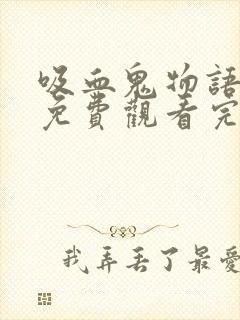 吸血鬼物語
免費觀看完
我弄丟了最愛